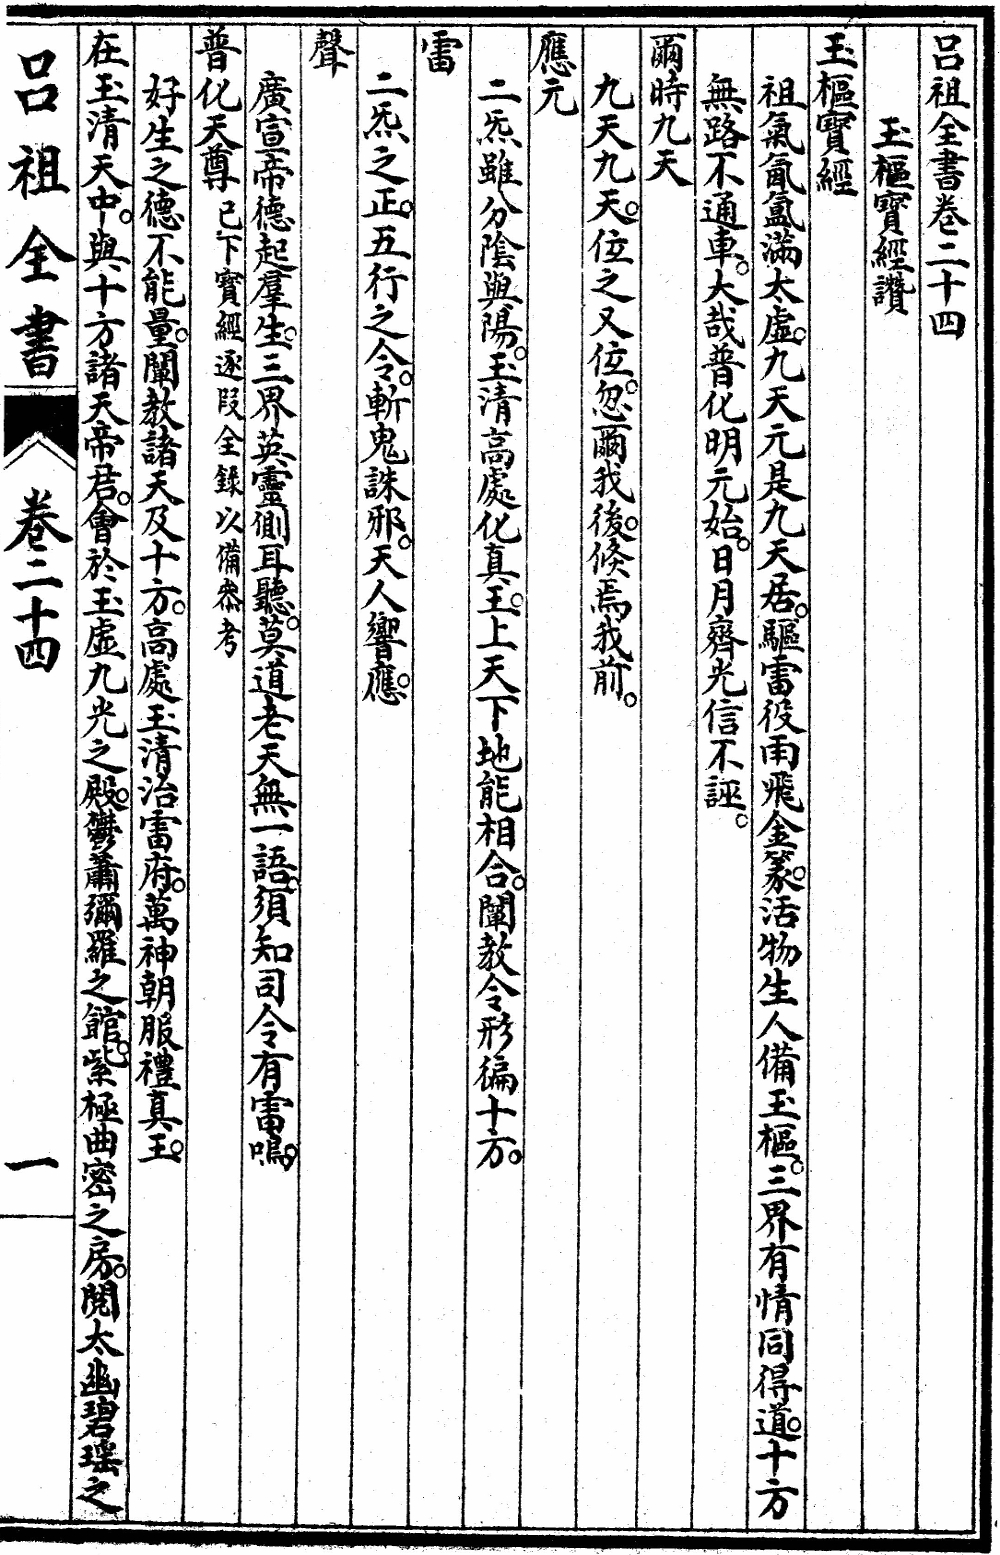 呂祖全書卷二十四
玉樞寶經讚
玉樞寶經
祖氣氤氳滿太虛。九天元是九天居。驅雷役雨飛金篆。活物生人備玉樞。三界有情同得道。十方
無路不通車。大哉普化明元始。日月齊光信不誣。
爾時九天
九天九天。位之又位。忽爾我後。倏焉我前。
應元
二炁雖分陰與陽。玉清高處化真王。上天下地能相合。闡教令形徧十方。
雷
二炁之正。五行之令。斬鬼誅邪。天人響應。
聲
廣宣帝德起羣生。三界英靈側耳聽。莫道老天無一語。須知司令有雷鳴。
普化天尊 已下寶經逐段全錄以備叅考
好生之德不能量。闡教諸天及十方。高處玉清治雷府。萬神朝服禮真王。
在玉清天中。與十方諸天帝君。會於玉虛九光之殿。鬱蕭彌羅之館。紫極曲密之房。閱太幽碧瑤之
呂祖全書 卷二十四 一